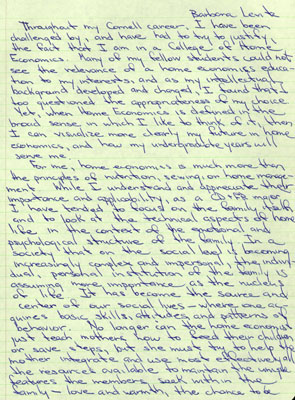 Barbara
Throughout my Cornell career I have been
challenged by, and have had to try to justify
the fact that I am in a College of Home
Economics. Many of my fellow students could not
see the relevance of a home economics educa-
tion to my interests and as my intellectual
background developed and changed, I found that I
too questioned the appropriateness of my choice
Yet, when Home Economics is defined in the
broad sense in which I like to think of it, then
I can visualize more clearly my future in home
economics, and how my undergraduate years will
serve me.
For me, home economics is much more than
the principles of nutrition, sewing, or home manage-
ment. While I understand and appreciate their
importance and applicability, as a major
I have tended to focus on the family itself
and to look at the technical aspects of home
life in the context of the emotional and
psychological structure of the family. In a
society that on the social level is becoming
increasingly complex and impersonal the indivi-
dual, personal institution of the family is
assuming more importance as the nucleus
of life. It has become the source and
center of our social lives - where one ac-
quires basic skills, attitudes and patterns of
behavior. No longer can the home economist
just teach mothers how to feed their children
or save steps, but she must try to help the
mother integrate and use most effectively all
the resources available to maintain the unique
features the members seek within the
family - love and warmth, the chance to be